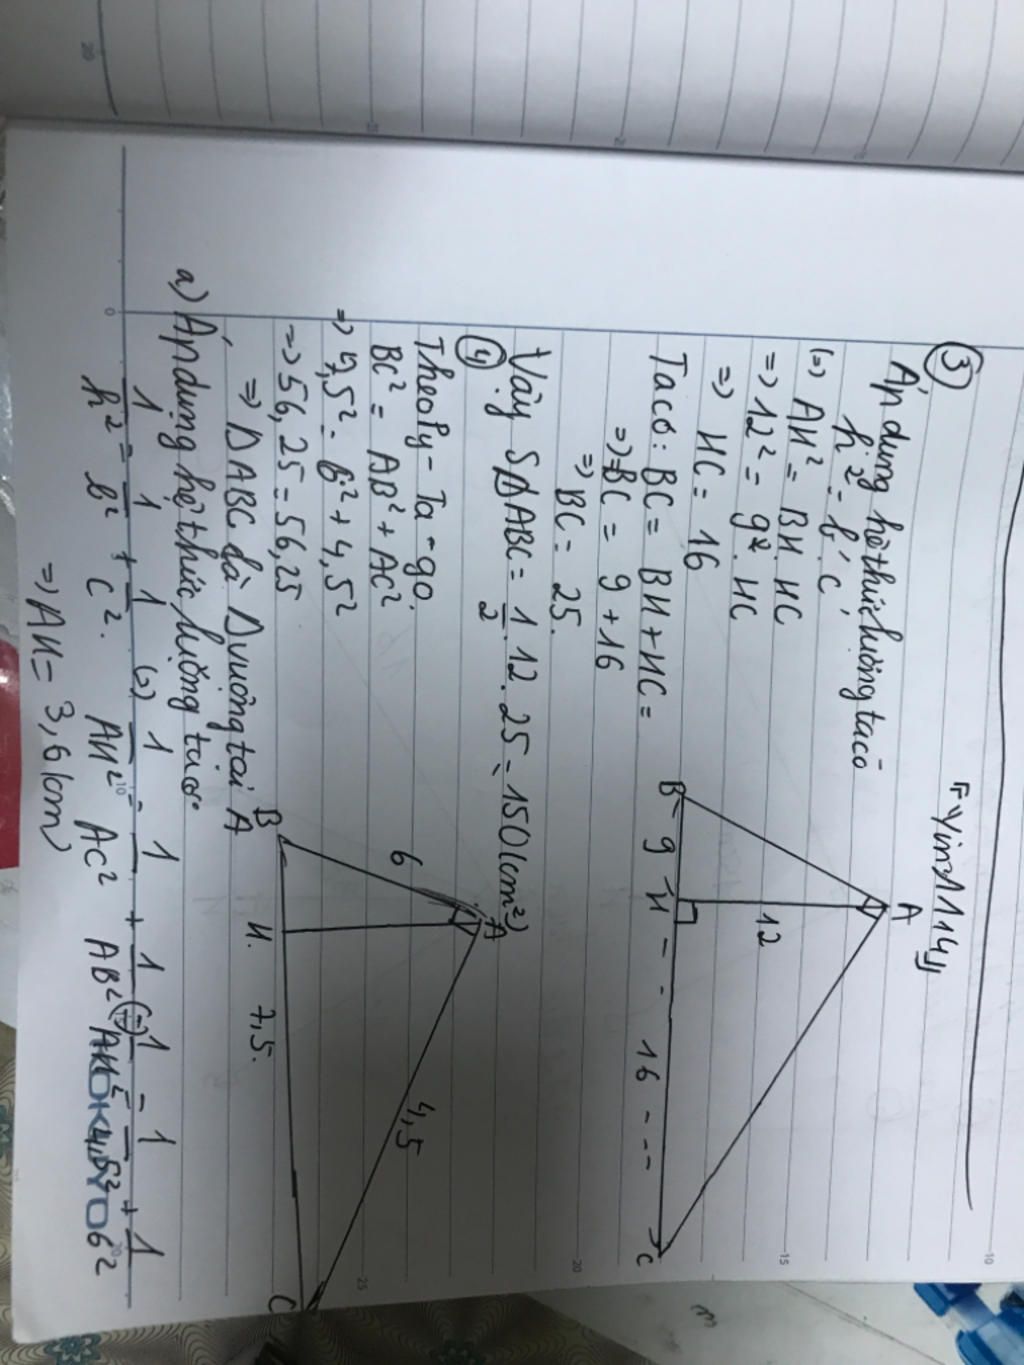 「Yin2114」
③
Áp dụng hệ thức lượng ta có
h² = b'. c'
(=) AH² = BH. HC
=) 12² = 9. HC
=) HC = 16
Ta có: BC = BH + HC =
=) BC = 9 + 16
=) BC = 25.
Vậy SΔABC = 1/2 . 12 . 25 = 150 (cm²)
A
12
B 9 H - - 16 - -- C
④
Theo Py-Ta-go.
BC² = AB² + AC²
=) 7,5² = 6² + 4,5²
=) 56,25 = 56,25
=) Δ ABC là Δ vuông tại A
A
6
4,5
B H. 7,5. C
a) Áp dụng hệ thức lượng ta có.
1/h² = 1/b² + 1/c². (=) 1/AH² = 1/AC² + 1/AB² (=) 1/AH² = 1/4,5² + 1/6²
=) AH = 3,6 (cm)
KOKUYO
10
15
20
25
0
10
20